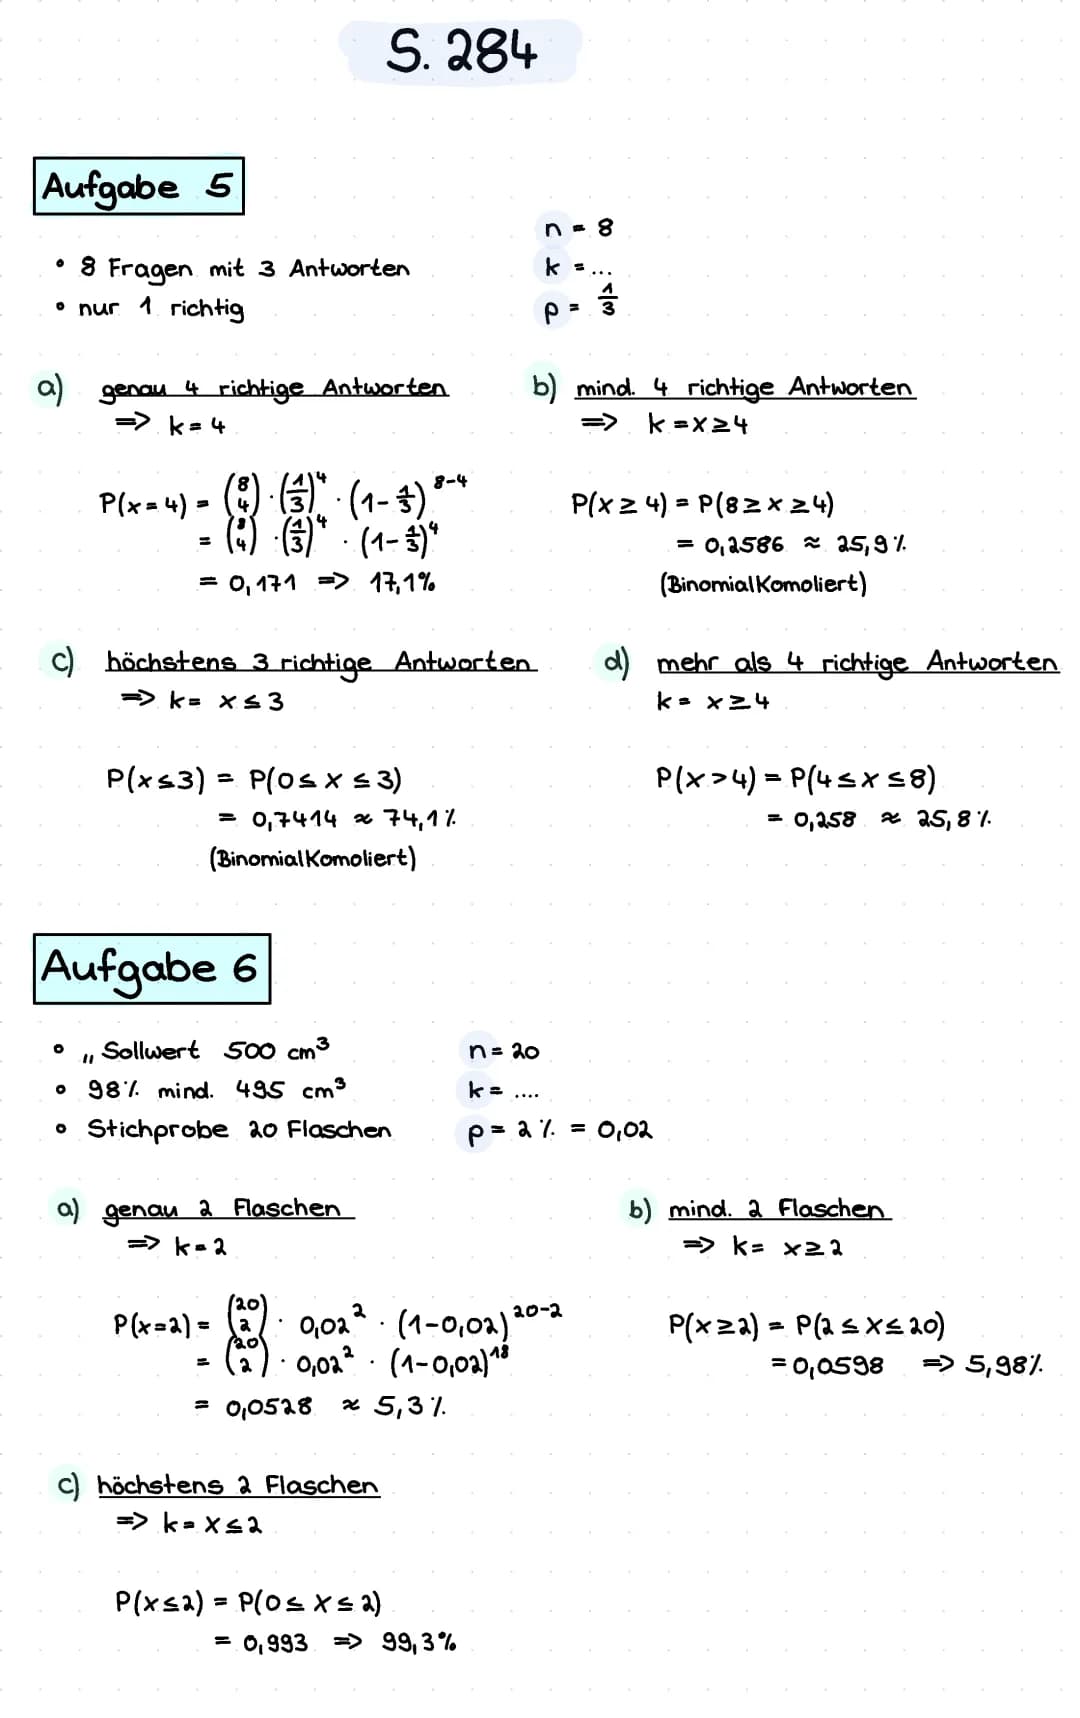 S. 284
Aufgabe 5
• 8 Fragen mit 3 Antworten
• nur 1 richtig
n = 8
k = ...
p = 1/3
a) genau 4 richtige Antworten
=> k = 4
P(x = 4) = (8 4) · (1/3)^4 · (1 - 1/3)^8-4
= (8 4) · (1/3)^4 · (1 - 1/3)^4
= 0,171 => 17,1%
b) mind. 4 richtige Antworten
=> k = x ≥ 4
P(x ≥ 4) = P(8 ≥ x ≥ 4)
= 0,2586 ≈ 25,9 %
(BinomialKomoliert)
c) höchstens 3 richtige Antworten
=> k = x ≤ 3
P(x ≤ 3) = P(0 ≤ x ≤ 3)
= 0,7414 ≈ 74,1 %
(BinomialKomoliert)
d) mehr als 4 richtige Antworten
k = x ≥ 4
P(x > 4) = P(4 ≤ x ≤ 8)
= 0,258 ≈ 25,8 %
Aufgabe 6
• „ Sollwert 500 cm³
• 98 % mind. 495 cm³
• Stichprobe 20 Flaschen
n = 20
k = ....
p = 2 % = 0,02
a) genau 2 Flaschen
=> k = 2
P(x = 2) = (20 2) · 0,02² · (1 - 0,02)^20-2
= (20 2) · 0,02² · (1 - 0,02)^18
= 0,0528 ≈ 5,3 %
b) mind. 2 Flaschen
=> k = x ≥ 2
P(x ≥ 2) = P(2 ≤ x ≤ 20)
= 0,0598 => 5,98 %
c) höchstens 2 Flaschen
=> k = x ≤ 2
P(x ≤ 2) = P(0 ≤ x ≤ 2)
= 0,993 => 99,3 %